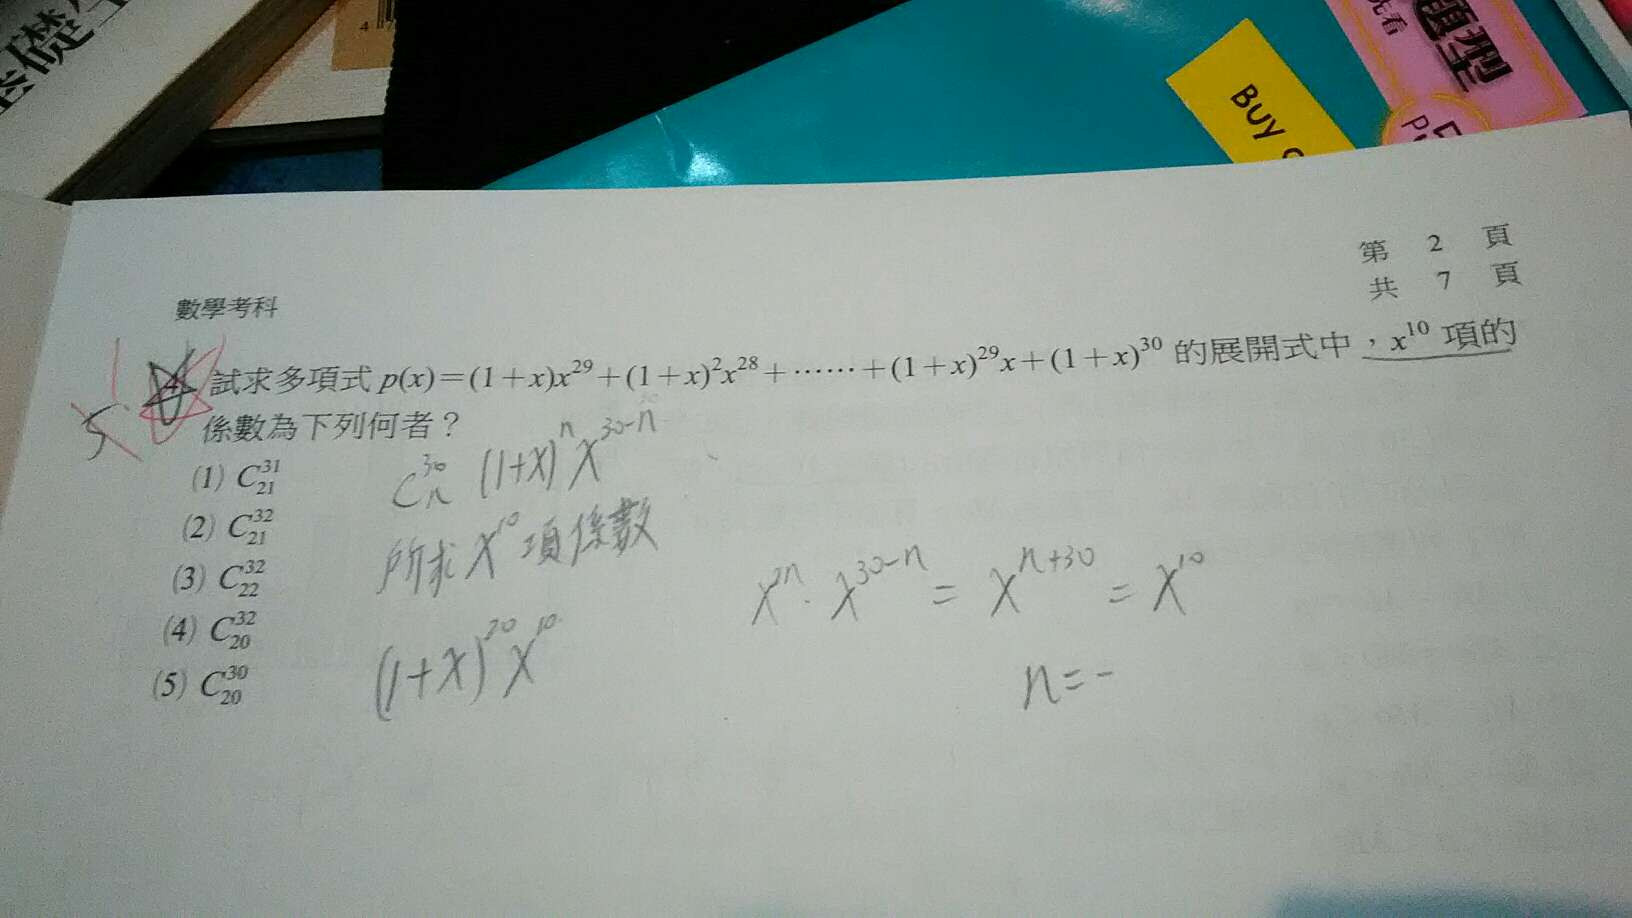 礎
BUY
題型
第 2 頁
共 7 頁
數學考科
試求多項式 p(x)=(1+x)x²⁹+(1+x)²x²⁸+……+(1+x)²⁹x+(1+x)³⁰ 的展開式中，x¹⁰ 項的
係數為下列何者？
(1) C³¹₂₁
(2) C³²₂₁
(3) C³²₂₂
(4) C³²₂₀
(5) C³⁰₂₀
5
C³⁰ₙ (1+x)ⁿ x³⁰⁻ⁿ
所求 x¹⁰ 項係數
(1+x)²⁰ x¹⁰
x²ⁿ · x³⁰⁻ⁿ = xⁿ⁺³⁰ = x¹⁰
n=-